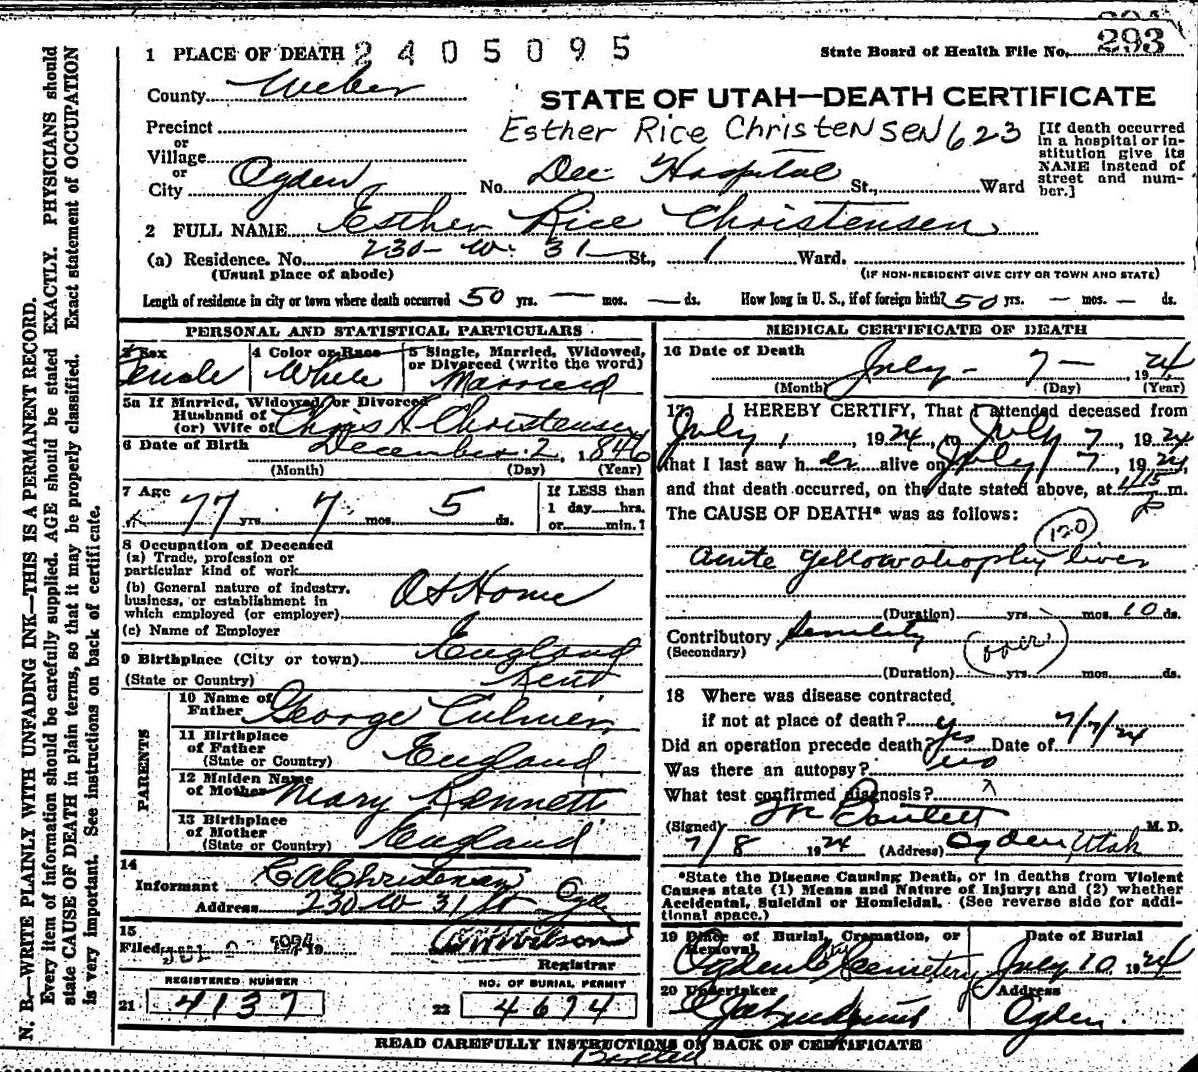 293
1 PLACE OF DEATH 2405095 State Board of Health File No. 293
County Weber
STATE OF UTAH—DEATH CERTIFICATE
Precinct
or
Village
or
City Ogden
Esther Rice Christensen 623
No. Dee Hospital St., Ward
[If death occurred
in a hospital or in-
stitution give its
NAME instead of
street and num-
ber.]
2 FULL NAME Esther Rice Christensen
(a) Residence. No. 230 - W. 31 St., 1 Ward.
(Usual place of abode) (IF NON-RESIDENT GIVE CITY OR TOWN AND STATE)
Length of residence in city or town where death occurred 50 yrs. — mos. — ds. How long in U. S., if of foreign birth? 50 yrs. — mos. — ds.
PERSONAL AND STATISTICAL PARTICULARS
3 Sex
Female
4 Color or Race
White
5 Single, Married, Widowed,
or Divorced (write the word)
Married
5a If Married, Widowed, or Divorced
Husband of
(or) Wife of Chris A Christensen
6 Date of Birth December 2, 1846
(Month) (Day) (Year)
7 Age
77 yrs. 7 mos. 5 ds.
If LESS than
1 day hrs.
or min.?
8 Occupation of Deceased
(a) Trade, profession or
particular kind of work
(b) General nature of industry,
business, or establishment in
which employed (or employer) At Home
(c) Name of Employer
9 Birthplace (City or town) England
(State or Country) Kent
PARENTS
10 Name of
Father George Culmer
11 Birthplace
of Father
(State or Country) England
12 Maiden Name
of Mother Mary Kennett
13 Birthplace
of Mother
(State or Country) England
14
Informant C A Christensen
Address 230 W 31 St Ogd
15
Filed JUL 1924 19
Registrar
REGISTERED NUMBER
21 4137
NO. OF BURIAL PERMIT
22 4674
MEDICAL CERTIFICATE OF DEATH
16 Date of Death
July - 7 - 1924
(Month) (Day) (Year)
17 I HEREBY CERTIFY, That I attended deceased from
July 1, 1924, to July 7, 1924
that I last saw her alive on July 7, 1924,
and that death occurred, on the date stated above, at 11:15 P m.
The CAUSE OF DEATH* was as follows:
120
acute yellow atrophy liver
(Duration) yrs. mos. 10 ds.
Contributory Senility
(Secondary) (over)
(Duration) yrs. mos. ds.
18 Where was disease contracted
if not at place of death?
Did an operation precede death? yes Date of 7/7/24
Was there an autopsy? no
What test confirmed diagnosis?
(Signed) M. D.
7/8 1924 (Address) Ogden, Utah
*State the Disease Causing Death, or in deaths from Violent
Causes state (1) Means and Nature of Injury; and (2) whether
Accidental, Suicidal or Homicidal. (See reverse side for addi-
tional space.)
19 Place of Burial, Cremation, or
Removal
Ogden City Cemetery
Date of Burial
July 10 1924
20 Undertaker
Address
Ogden.
READ CAREFULLY INSTRUCTIONS ON BACK OF CERTIFICATE
N. B.—WRITE PLAINLY WITH UNFADING INK—THIS IS A PERMANENT RECORD.
Every item of information should be carefully supplied. AGE should be stated EXACTLY. PHYSICIANS should
state CAUSE OF DEATH in plain terms, so that it may be properly classified. Exact statement of OCCUPATION
is very important. See instructions on back of certificate.